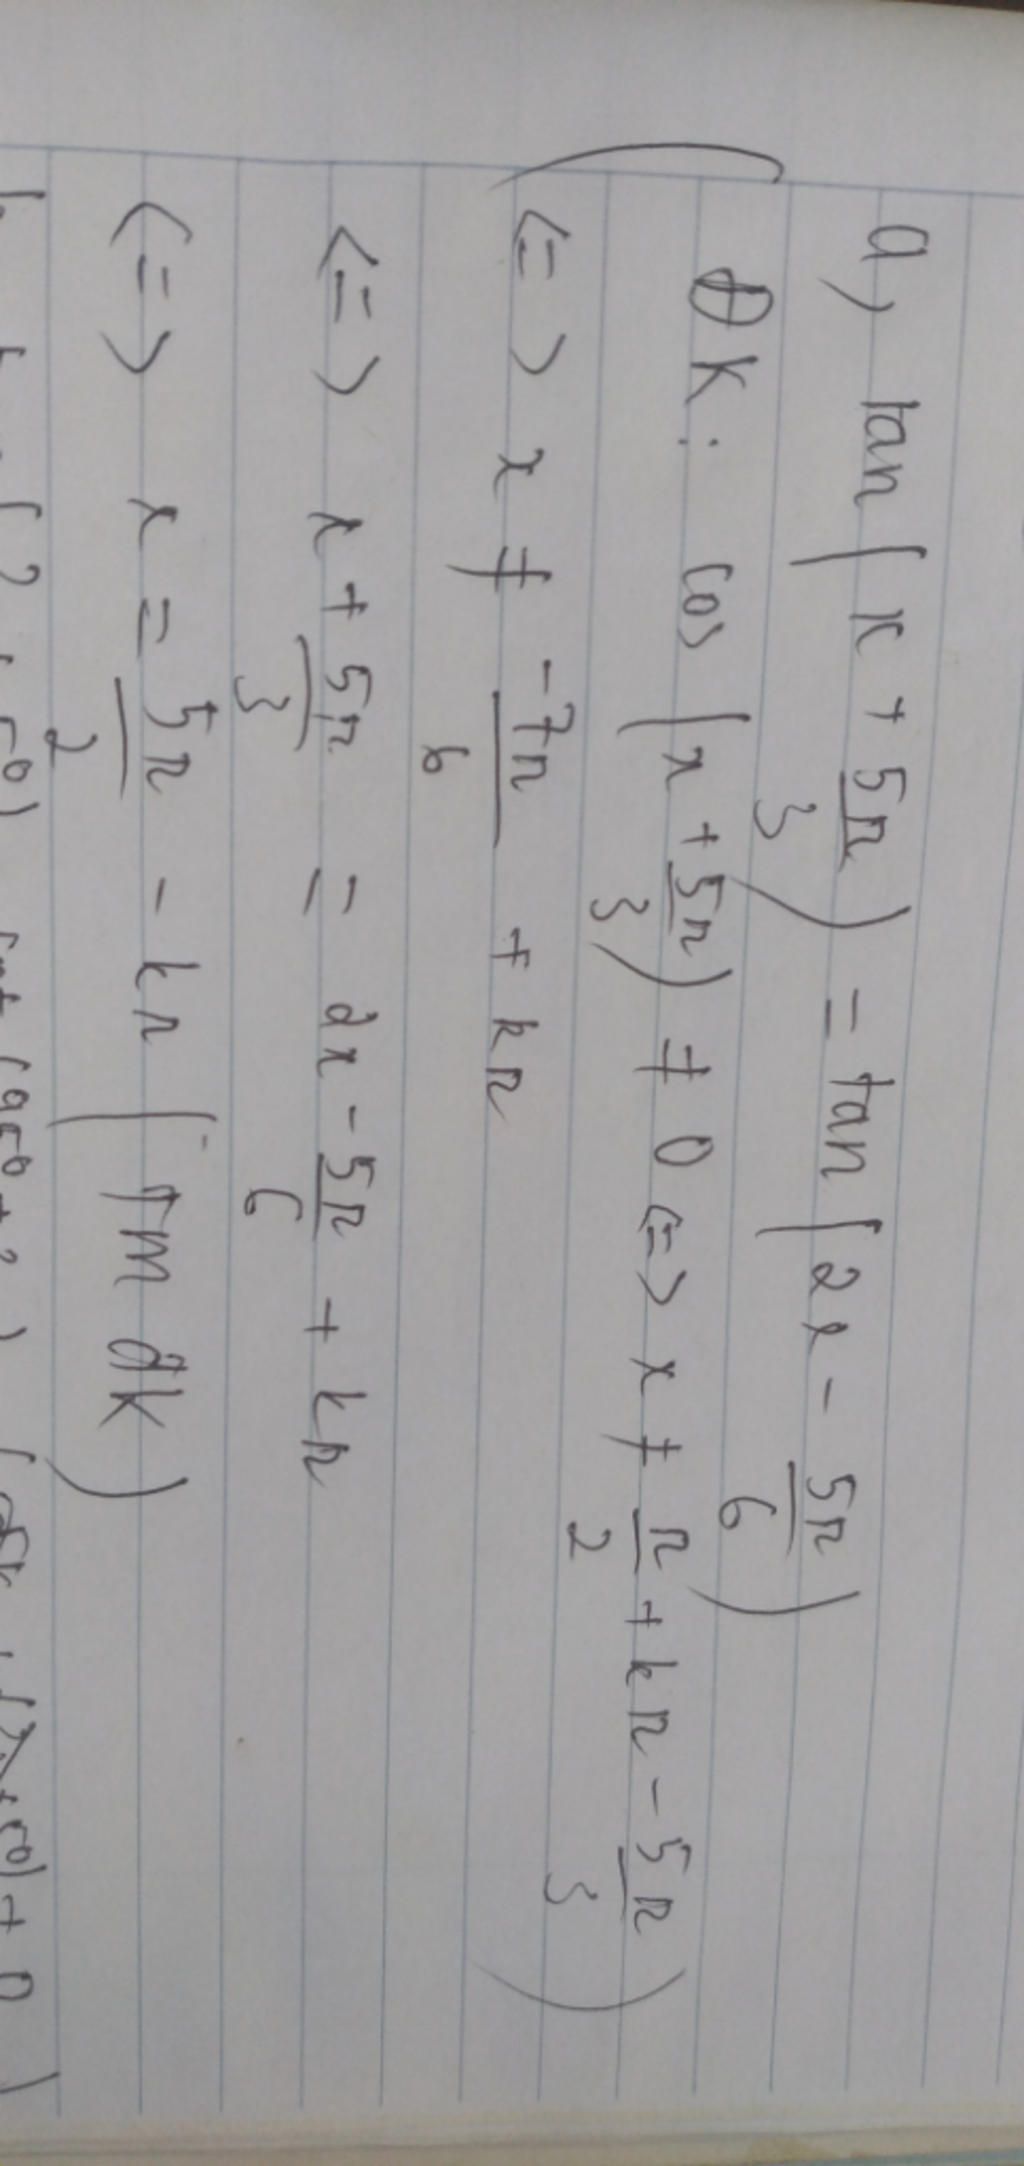 a, tan(x + 5π/3) = tan(2x - 5π/6)
(ĐK: cos(x + 5π/3) ≠ 0 <=> x ≠ π/2 + kπ - 5π/3
<=> x ≠ -7π/6 + kπ)
<=> x + 5π/3 = 2x - 5π/6 + kπ
<=> x = 5π/2 - kπ (Tm đk)